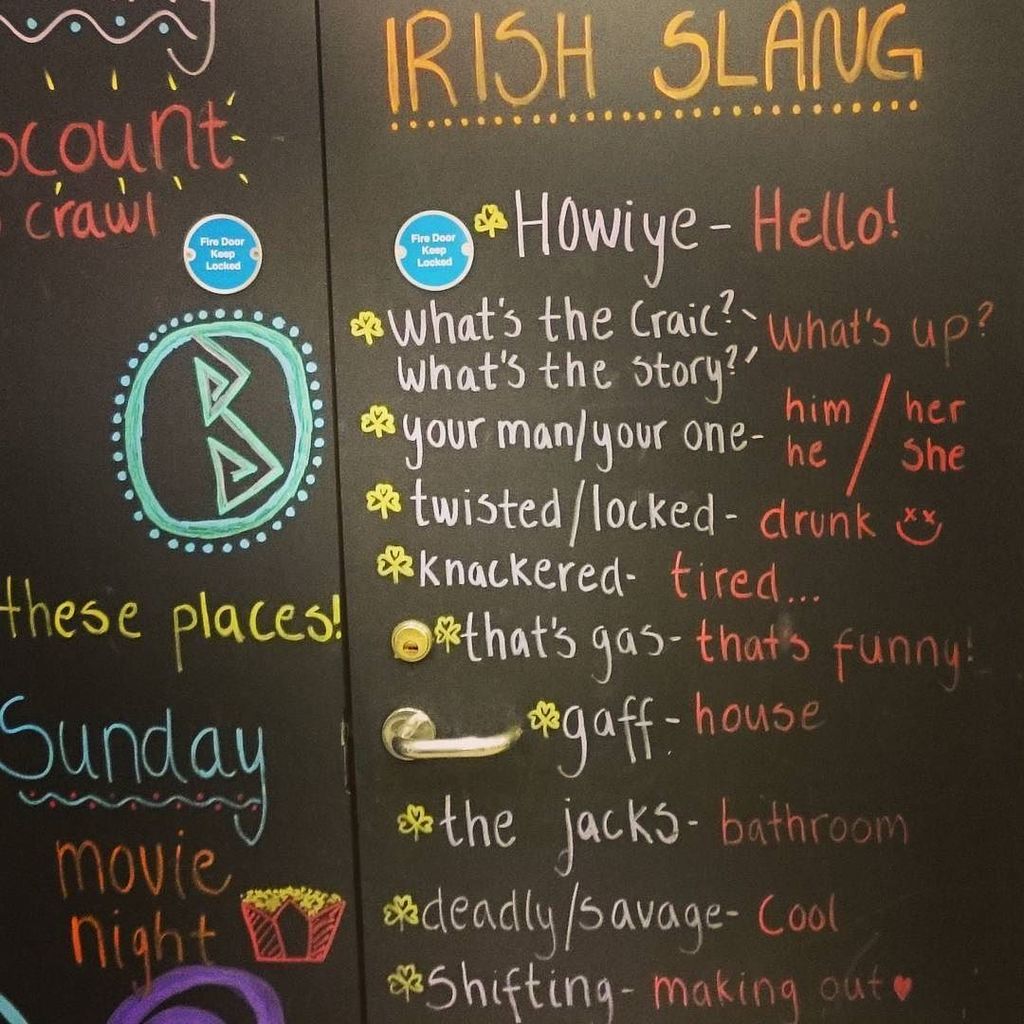 count
crawl
Fire Door
Keep
Locked
these places!
Sunday
movie
night
IRISH SLANG
Fire Door
Keep
Locked
Howiye - Hello!
What's the Craic?
What's the story?
What's up?
your man/your one- him / her
he / she
twisted/locked- drunk
knackered- tired...
that's gas- that's funny!
gaff- house
the jacks- bathroom
deadly/savage- Cool
Shifting- making out